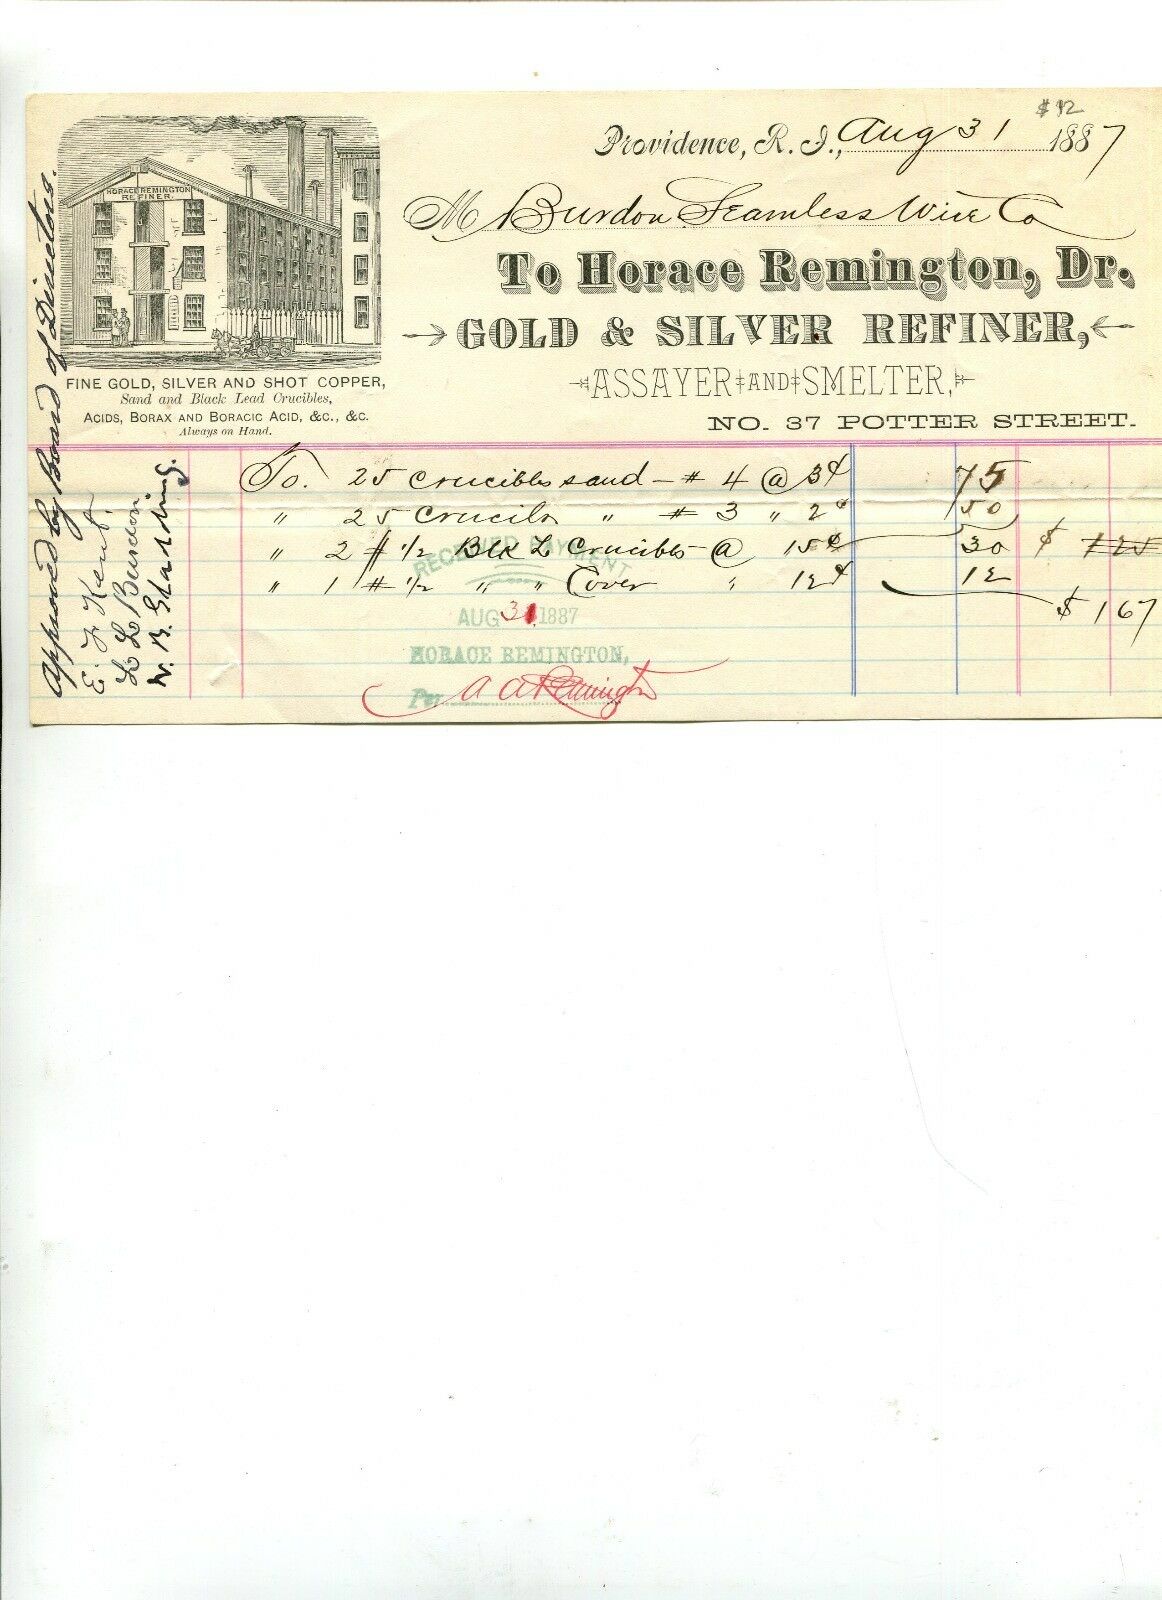 $12
Providence, R. I., Aug 31 1887
M Burdon Seamless Wire Co
To Horace Remington, Dr.
GOLD & SILVER REFINER,
ASSAYER AND SMELTER,
NO. 37 POTTER STREET.
HORACE REMINGTON
REFINER.
FINE GOLD, SILVER AND SHOT COPPER,
Sand and Black Lead Crucibles,
ACIDS, BORAX AND BORACIC ACID, &C., &C.
Always on Hand.
To. 25 Crucibles sand - # 4 @ 3¢ 75
" 25 Crucibls " # 3 " 2¢ 50
" 2 # 1/2 Blk L Crucibles @ 15¢ 30 $ 125
" 1 # 1/2 " " Cover " 12¢ 12
$ 167
RECEIVED PAYMENT
AUG 31 1887
HORACE REMINGTON,
Per A A Remington
Approved by Board of Directors.
E. F. Kent.
L L Burdon